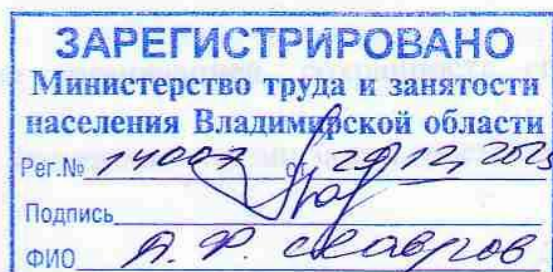 ЗАРЕГИСТРИРОВАНО
Министерство труда и занятости
населения Владимирской области
Рег.№ 14007 от 29.12.2025
Подпись
ФИО А. Ф.